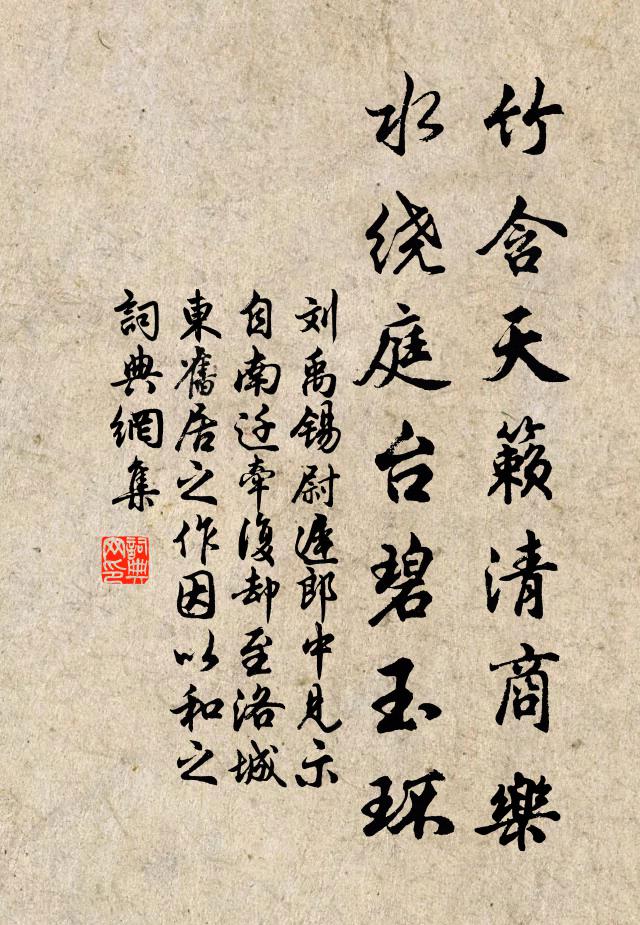 竹含天籟清商樂
水绕庭台碧玉环
刘禹锡尉遲郎中見示
自南迁牵復却至洛城
東舊居之作因以和之
詞典網集
詞典
网印